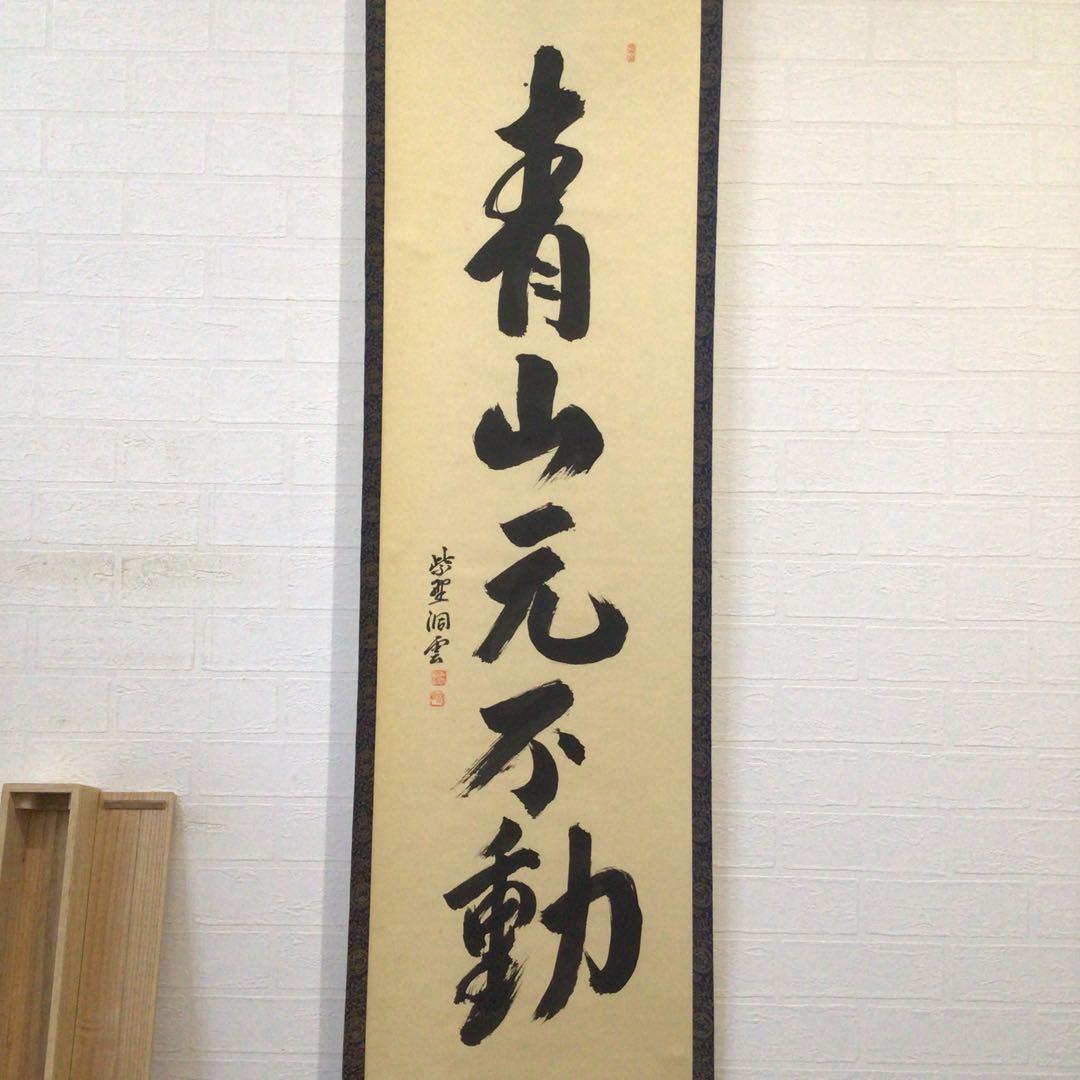 青山元不動
紫野洞雲